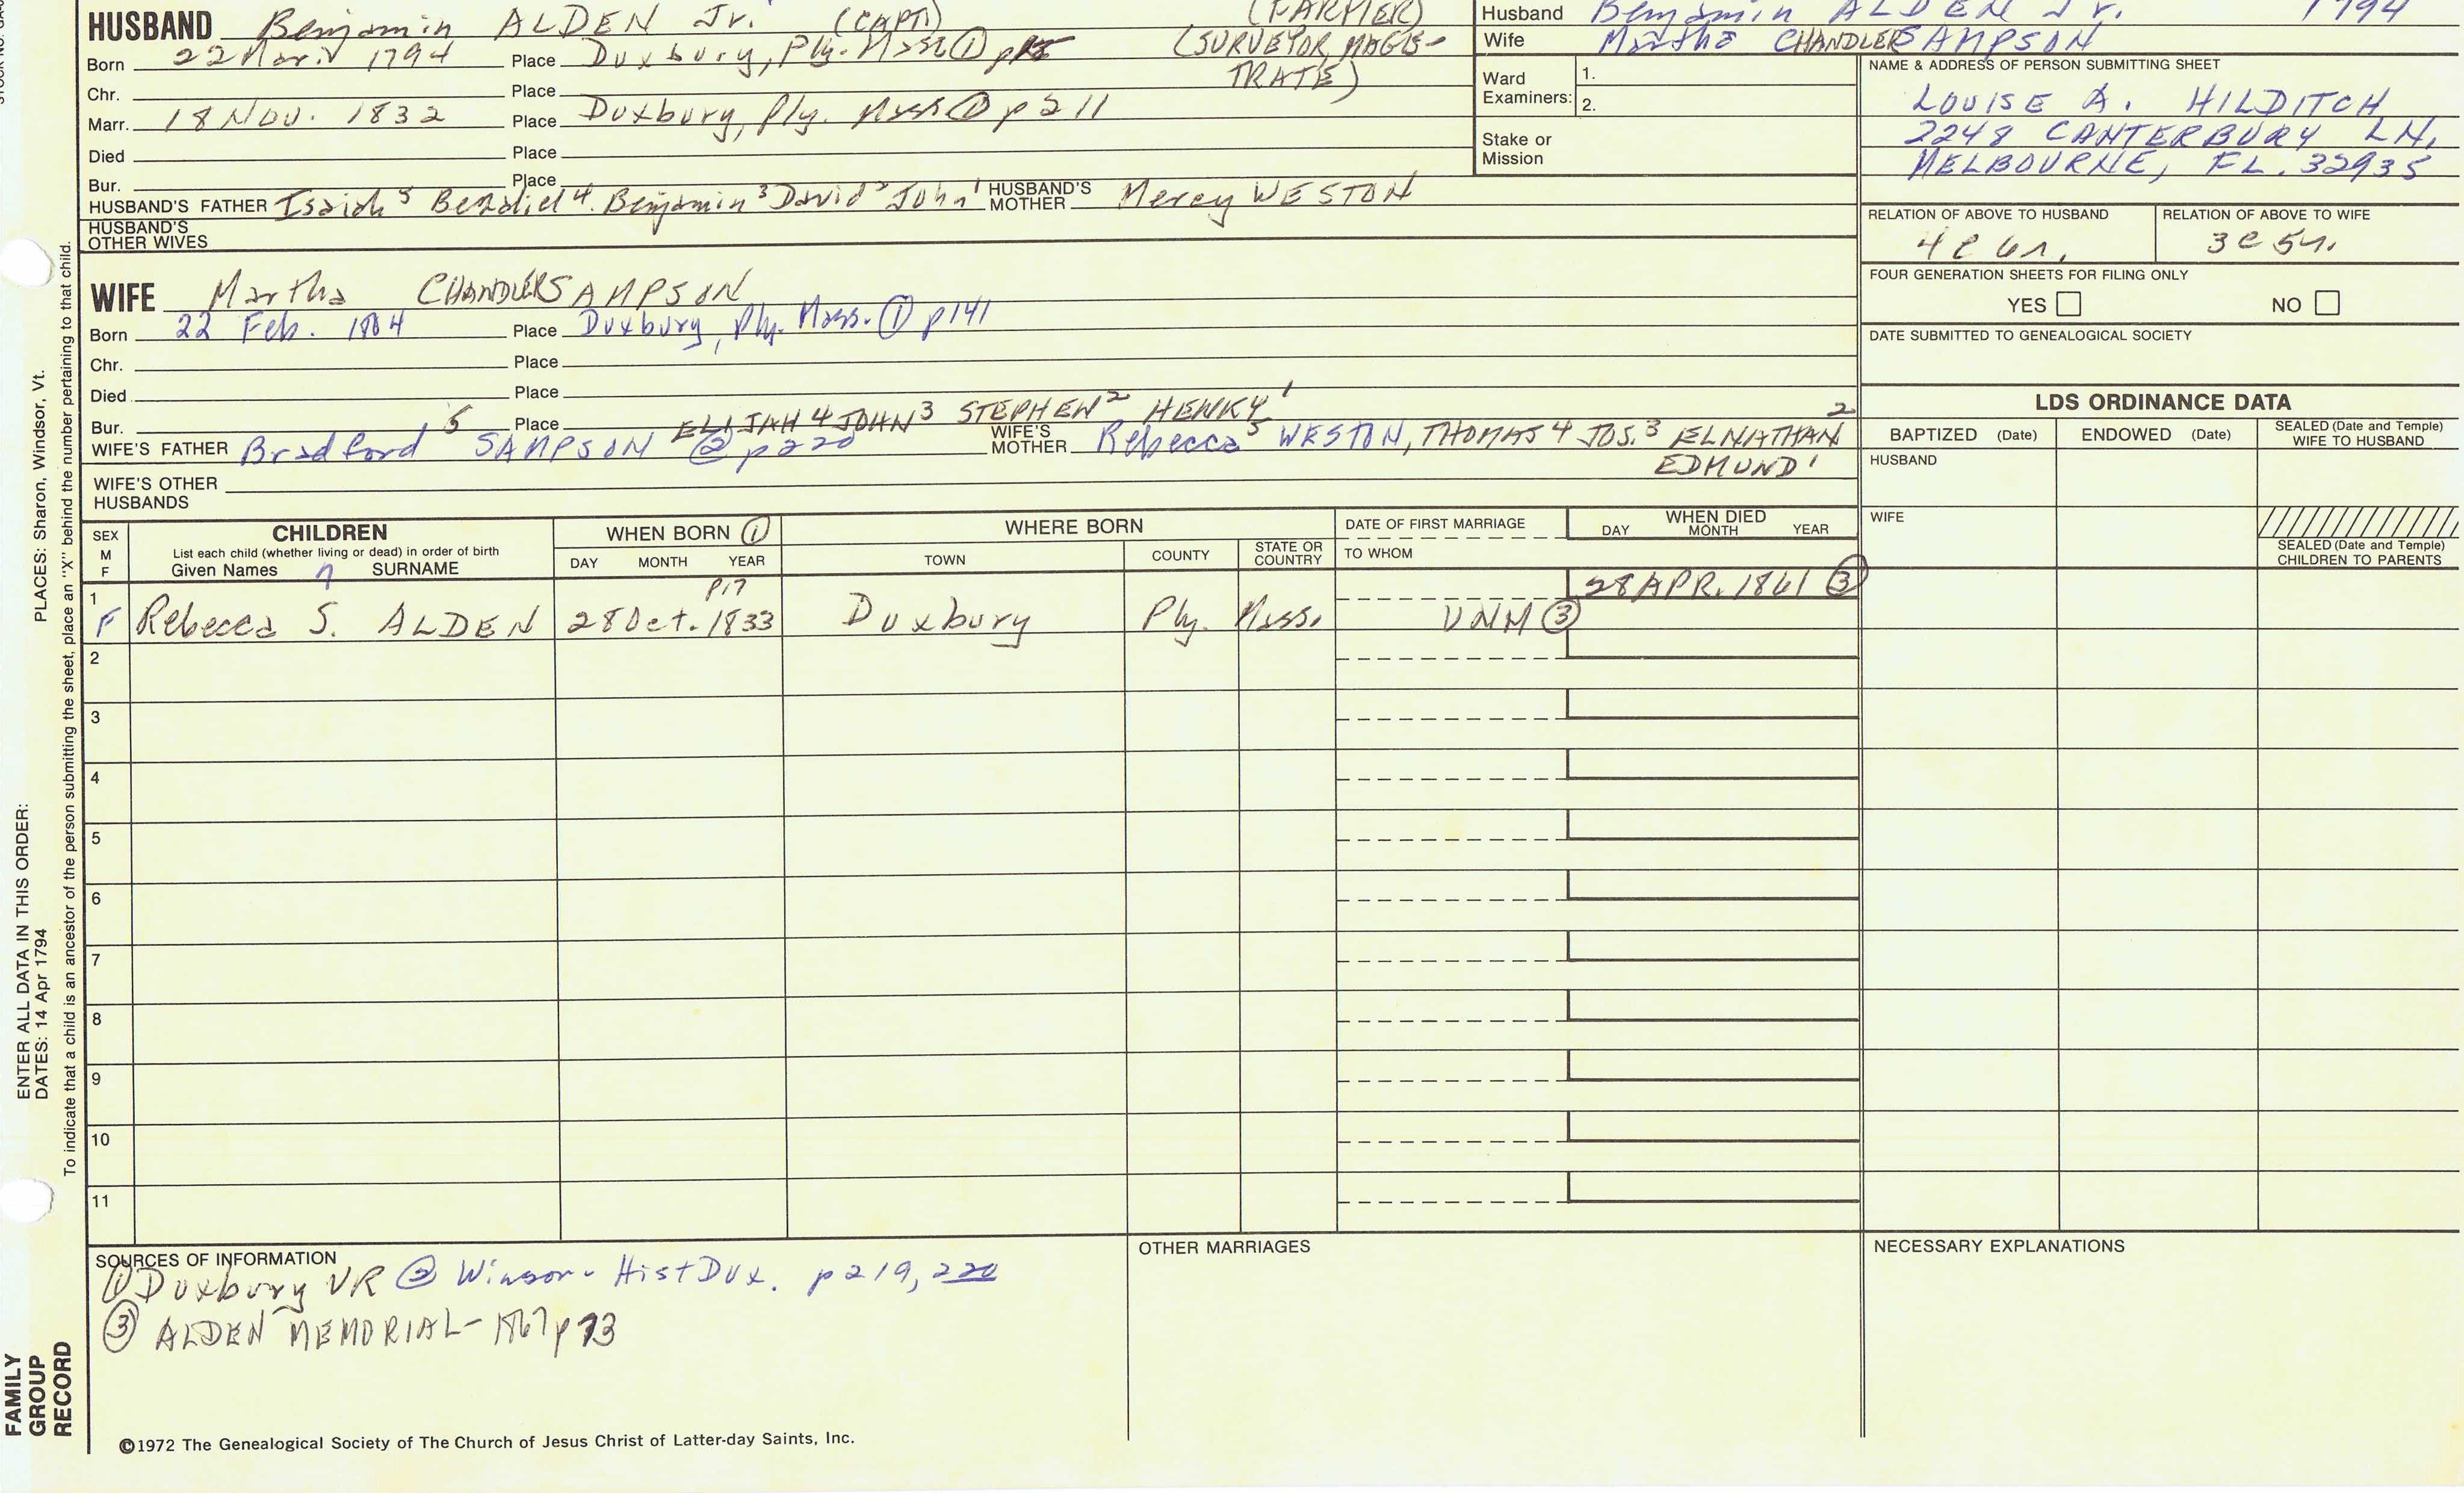 HUSBAND Benjamin ALDEN Jr. (CAPT) (FARMER)
Born 22 Mar. 1794 Place Duxbury, Ply. Mass ① (SURVEYOR, MAGIS-
TRATE)
Chr. Place
Marr. 18 Nov. 1832 Place Duxbury, Ply. Mass ① p 211
Died Place
Bur. Place
HUSBAND'S FATHER Isaiah 5 Bezaliel 4. Benjamin 3 David 2 John 1 HUSBAND'S MOTHER Mercy WESTON
HUSBAND'S
OTHER WIVES
WIFE Martha CHANDLER SAMPSON
Born 22 Feb. 1804 Place Duxbury, Ply. Mass. ① p141
Chr. Place
Died Place
Bur. Place
WIFE'S FATHER Bradford 5 SAMPSON ELIJAH 4 JOHN 3 STEPHEN 2 HENRY 1
② p 220
WIFE'S MOTHER Rebecca 5 WESTON, THOMAS 4 JOS. 3 ELNATHAN 2
EDMUND 1
WIFE'S OTHER
HUSBANDS
Husband Benjamin ALDEN Jr. 1794
Wife Martha CHANDLER SAMPSON
Ward
Examiners: 1.
2.
Stake or
Mission
NAME & ADDRESS OF PERSON SUBMITTING SHEET
LOUISE A. HILDITCH
2248 CANTERBURY LN.
MELBOURNE, FL. 32935
RELATION OF ABOVE TO HUSBAND RELATION OF ABOVE TO WIFE
4 c 6r. 3 c 5r.
FOUR GENERATION SHEETS FOR FILING ONLY
YES NO
DATE SUBMITTED TO GENEALOGICAL SOCIETY
LDS ORDINANCE DATA
BAPTIZED (Date) ENDOWED (Date) SEALED (Date and Temple)
WIFE TO HUSBAND
HUSBAND
WIFE
SEALED (Date and Temple)
CHILDREN TO PARENTS
SEX
M
F
CHILDREN
List each child (whether living or dead) in order of birth
Given Names 7 SURNAME
WHEN BORN ①
DAY MONTH YEAR
WHERE BORN
TOWN COUNTY STATE OR
COUNTRY
DATE OF FIRST MARRIAGE
TO WHOM
WHEN DIED
DAY MONTH YEAR
p17 28 APR. 1861 ③
1 F Rebecca S. ALDEN 28 Oct. 1833 Duxbury Ply. Mass. UNM ③
2
3
4
5
6
7
8
9
10
11
SOURCES OF INFORMATION
① Duxbury VR ② Winsor - Hist Dux. p 219, 220
③ ALDEN MEMORIAL - 1867 p 73
OTHER MARRIAGES
NECESSARY EXPLANATIONS
©1972 The Genealogical Society of The Church of Jesus Christ of Latter-day Saints, Inc.
PLACES: Sharon, Windsor, Vt.
ENTER ALL DATA IN THIS ORDER:
DATES: 14 Apr 1794
To indicate that a child is an ancestor of the person submitting the sheet, place an "X" behind the number pertaining to that child.
FAMILY
GROUP
RECORD